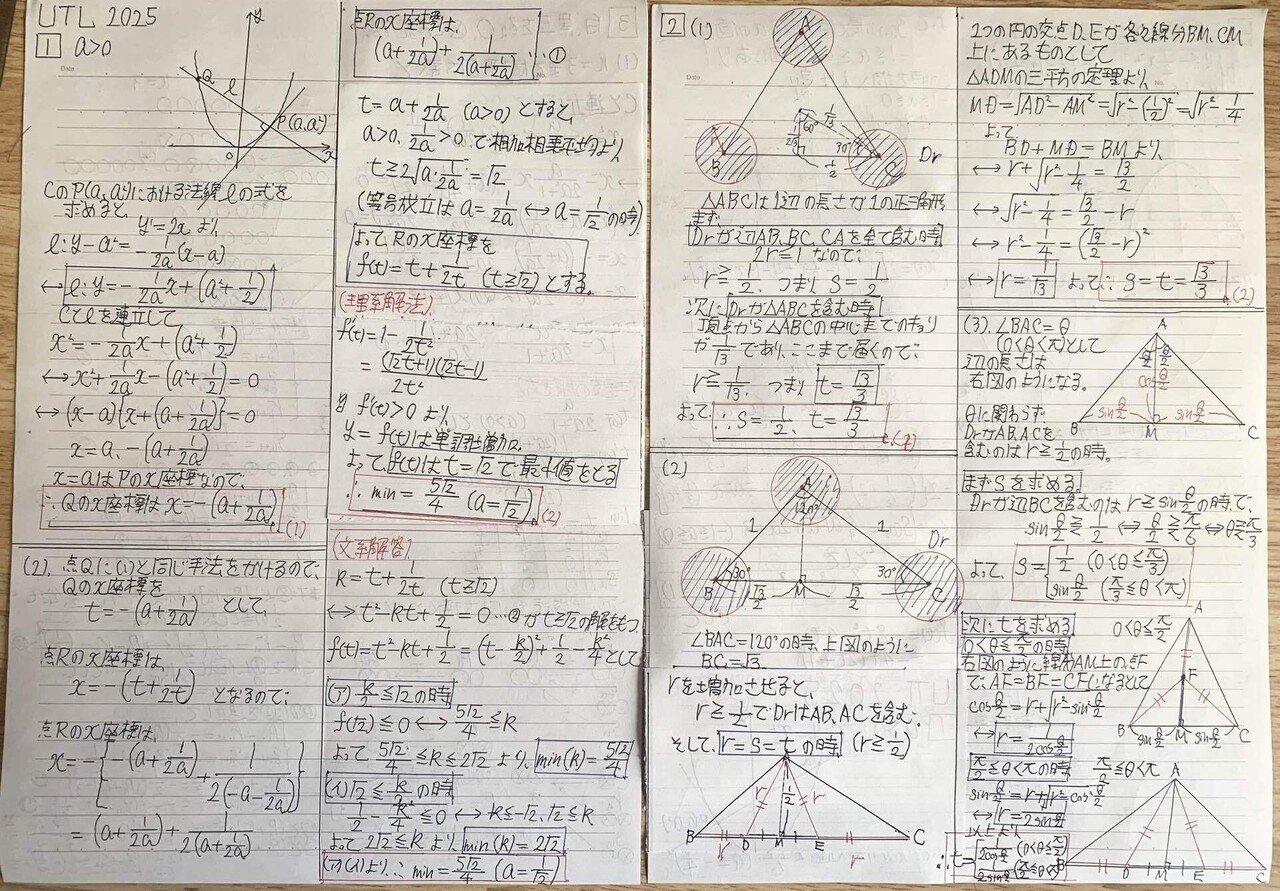 UTL 2025
1 a>0
y
Q
l
P(a,a²)
O
x
CのP(a,a²)における法線lの式を
求めると、
y'=2x より
l: y-a²=-1/2a(x-a)
↔ l: y=-1/2a x+(a²+1/2)
Cとlを連立して
x²=-1/2a x+(a²+1/2)
↔ x²+1/2a x-(a²+1/2)=0
↔ (x-a){x+(a+1/2a)}=0
x=a, -(a+1/2a)
x=aはPのx座標なので、
∴ Qのx座標は x=-(a+1/2a) (1)
(2). 点Qに(1)と同じ手法をかけるので、
Qのx座標を
t=-(a+1/2a) として、
点Rのx座標は、
x=-(t+1/2t) となるので、
点Rのx座標は、
x=-{-(a+1/2a)+1/2(-a-1/2a)}
=(a+1/2a)+1/2(a+1/2a)
点Rのx座標は、
(a+1/2a)+1/2(a+1/2a) …①
t=a+1/2a (a>0) とすると、
a>0, 1/2a>0 で相加相乗平均より、
t≧2√a・1/2a=√2
(等号成立は a=1/2a ↔ a=1/√2 の時)
よって、Rのx座標を
f(t)=t+1/2t (t≧√2) とする。
(理系解法)
f'(t)=1-1/2t²
=(√2t+1)(√2t-1)/2t²
f'(t)>0 より
y=f(t)は単調増加。
よって、f(t)は t=√2で最小値をとる
∴ min=5√2/4 (a=1/√2) (2)
(文系解答)
k=t+1/2t (t≧√2)
↔ t²-kt+1/2=0 …②が t≧√2の解をもつ。
f(t)=t²-kt+1/2=(t-k/2)²+1/2-k²/4として
(ア) k/2≦√2の時
f(√2)≦0 ↔ 5√2/4≦k
よって 5√2/4≦k≦2√2 より、min(k)=5√2/4
(イ) √2≦k/2の時
1/2-k²/4≦0 ↔ k≦-√2, √2≦k
よって 2√2≦k より min(k)=2√2
(ア)(イ)より、∴ min=5√2/4 (a=1/√2)
2 (1)
A
60°
1/√3
1/2√3
30°
1/2
r
B
C
Dr
△ABCは1辺の長さが1の正三角形
まず
Drが辺AB, BC, CAを全て含む時
2r≧1 なので、
r≧1/2, つまり S=1/2
次に Drが△ABCを含む時
頂点から△ABCの中心までのキョリ
が1/√3であり、ここまで届くので、
r≧1/√3, つまり t=√3/3
よって、∴ S=1/2, t=√3/3 (1)
(2)
A
120°
1
1
Dr
30°
30°
B
√3/2
M
√3/2
C
∠BAC=120°の時、上図のように
BC=√3
rを増加させると、
r≧1/2でDrはAB, ACを含む。
そして、r=S=tの時 (r≧1/2)
A
r
1/2
r
B
r
D
M
E
r
C
2つの円の交点D, Eが各々線分BM, CM
上にあるものとして
△ADMの三平方の定理より、
MD=√AD²-AM²=√r²-(1/2)²=√r²-1/4
よって
BD+MD=BM より、
↔ r+√r²-1/4=√3/2
↔ √r²-1/4=√3/2-r
↔ r²-1/4=(√3/2-r)²
↔ r=1/√3 よって∴ S=t=√3/3 (2)
(3). ∠BAC=θ
(0<θ<π)として
辺の長さは
右図のようになる。
A
θ/2
θ/2
cosθ/2
sinθ/2
sinθ/2
B
M
C
θに関わらず
DrがAB, ACを
含むのは r≧1/2の時。
まずSを求める。
Drが辺BCを含むのは r≧sinθ/2の時で、
sinθ/2≧1/2 ↔ θ/2≧π/6 ↔ θ≧π/3
よって、S={1/2 (0<θ≦π/3)
sinθ/2 (π/3≦θ<π)
次にtを求める
0<θ≦π/2
0<θ≦π/2の時
右図のように線分AM上の点F
で、AF=BF=CFになるとして
cosθ/2=r+√r²-sin²θ/2
↔ r=1/2cosθ/2
A
F
B
sinθ/2
M
sinθ/2
C
π/2≦θ<πの時
π/2≦θ<π
sinθ/2=r+√r²-cos²θ/2
↔ r=1/2sinθ/2
以上より
∴ t={1/2cosθ/2 (0<θ≦π/2)
1/2sinθ/2 (π/2≦θ<π)
A
B
D
M
E
C